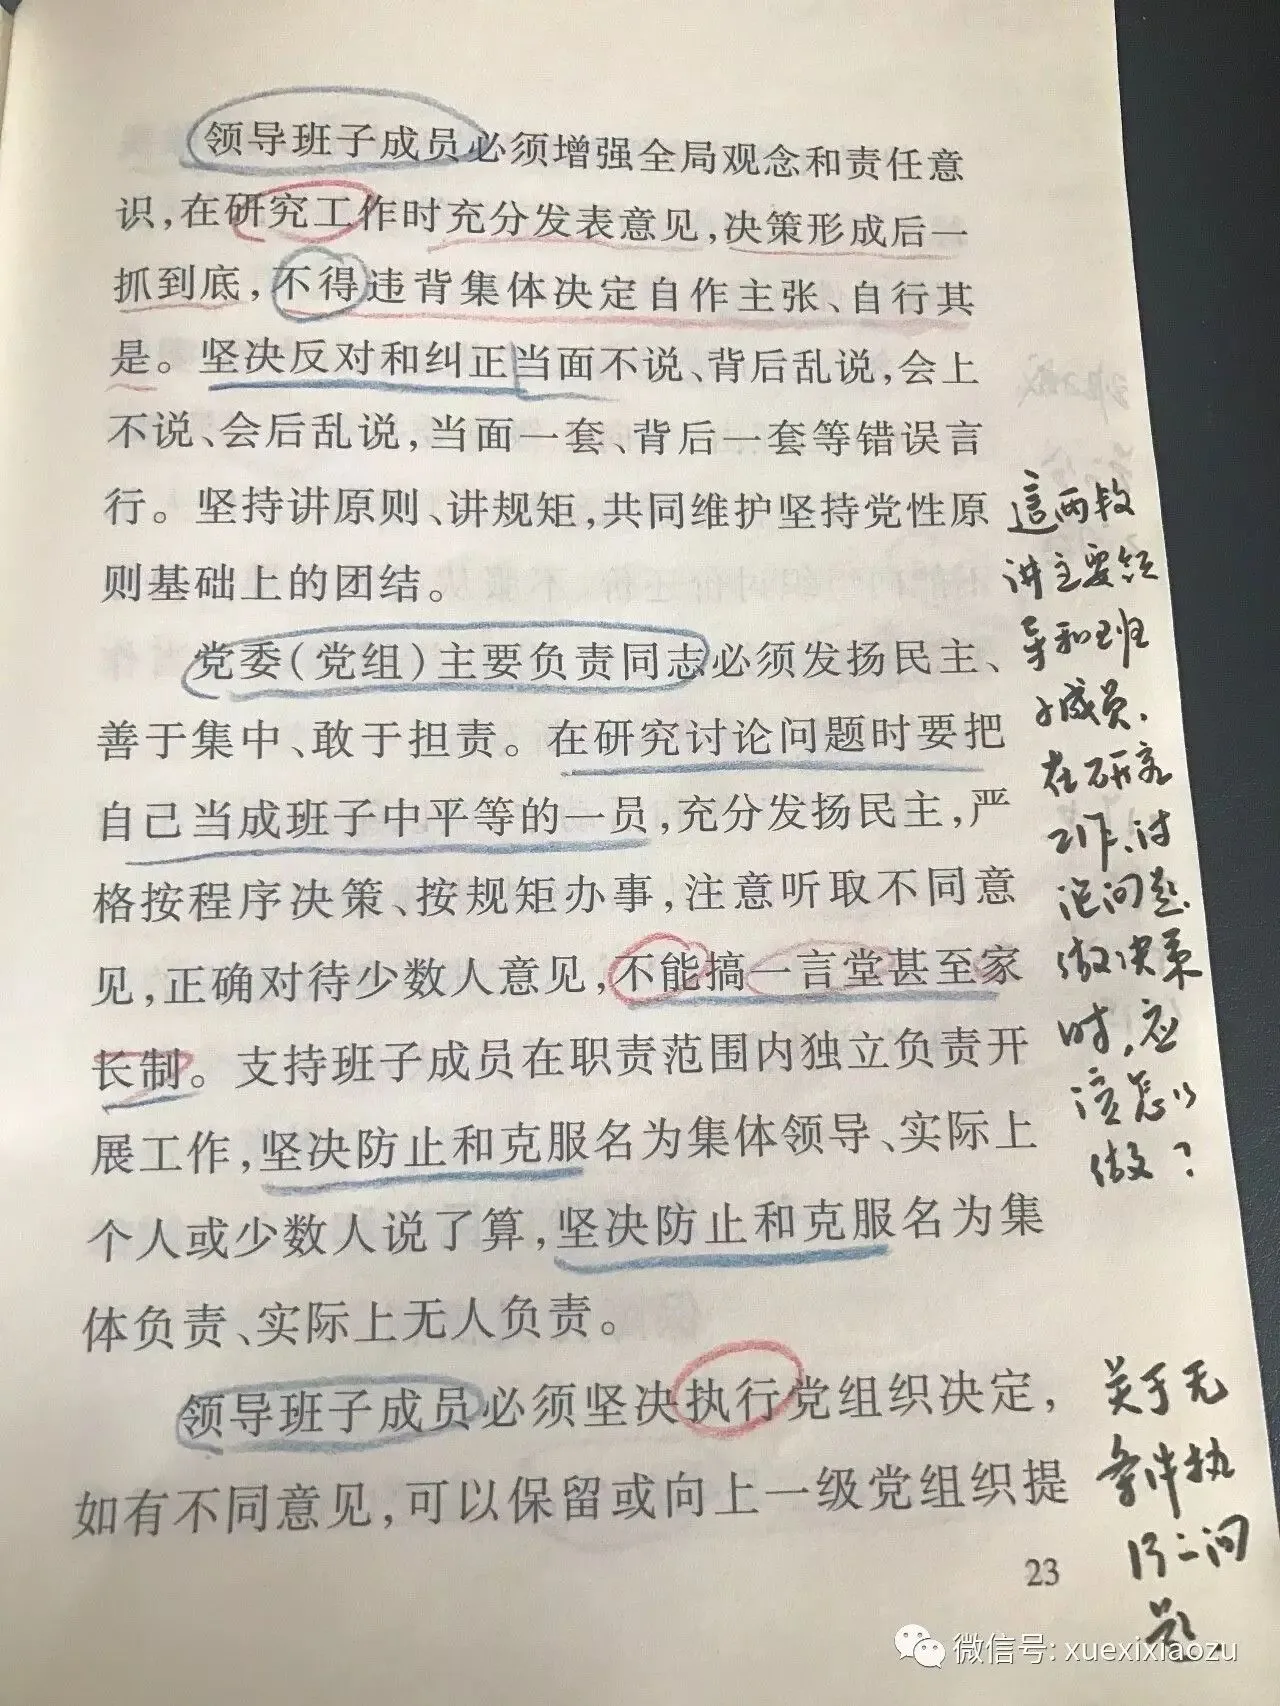 领导班子成员必须增强全局观念和责任意
识,在研究工作时充分发表意见,决策形成后一
抓到底,不得违背集体决定自作主张、自行其
是。坚决反对和纠正当面不说、背后乱说,会上
不说、会后乱说,当面一套、背后一套等错误言
行。坚持讲原则、讲规矩,共同维护坚持党性原
则基础上的团结。
党委(党组)主要负责同志必须发扬民主、
善于集中、敢于担责。在研究讨论问题时要把
自己当成班子中平等的一员,充分发扬民主,严
格按程序决策、按规矩办事,注意听取不同意
见,正确对待少数人意见,不能搞一言堂甚至家
长制。支持班子成员在职责范围内独立负责开
展工作,坚决防止和克服名为集体领导、实际上
个人或少数人说了算,坚决防止和克服名为集
体负责、实际上无人负责。
领导班子成员必须坚决执行党组织决定,
如有不同意见,可以保留或向上一级党组织提
23
這两段
讲主要领
导和班
子成员,
在研究
工作、讨
论问题
做决策
时,应
该怎么
做?
关于无
条件执
行的问
题
微信号: xuexixiaozu